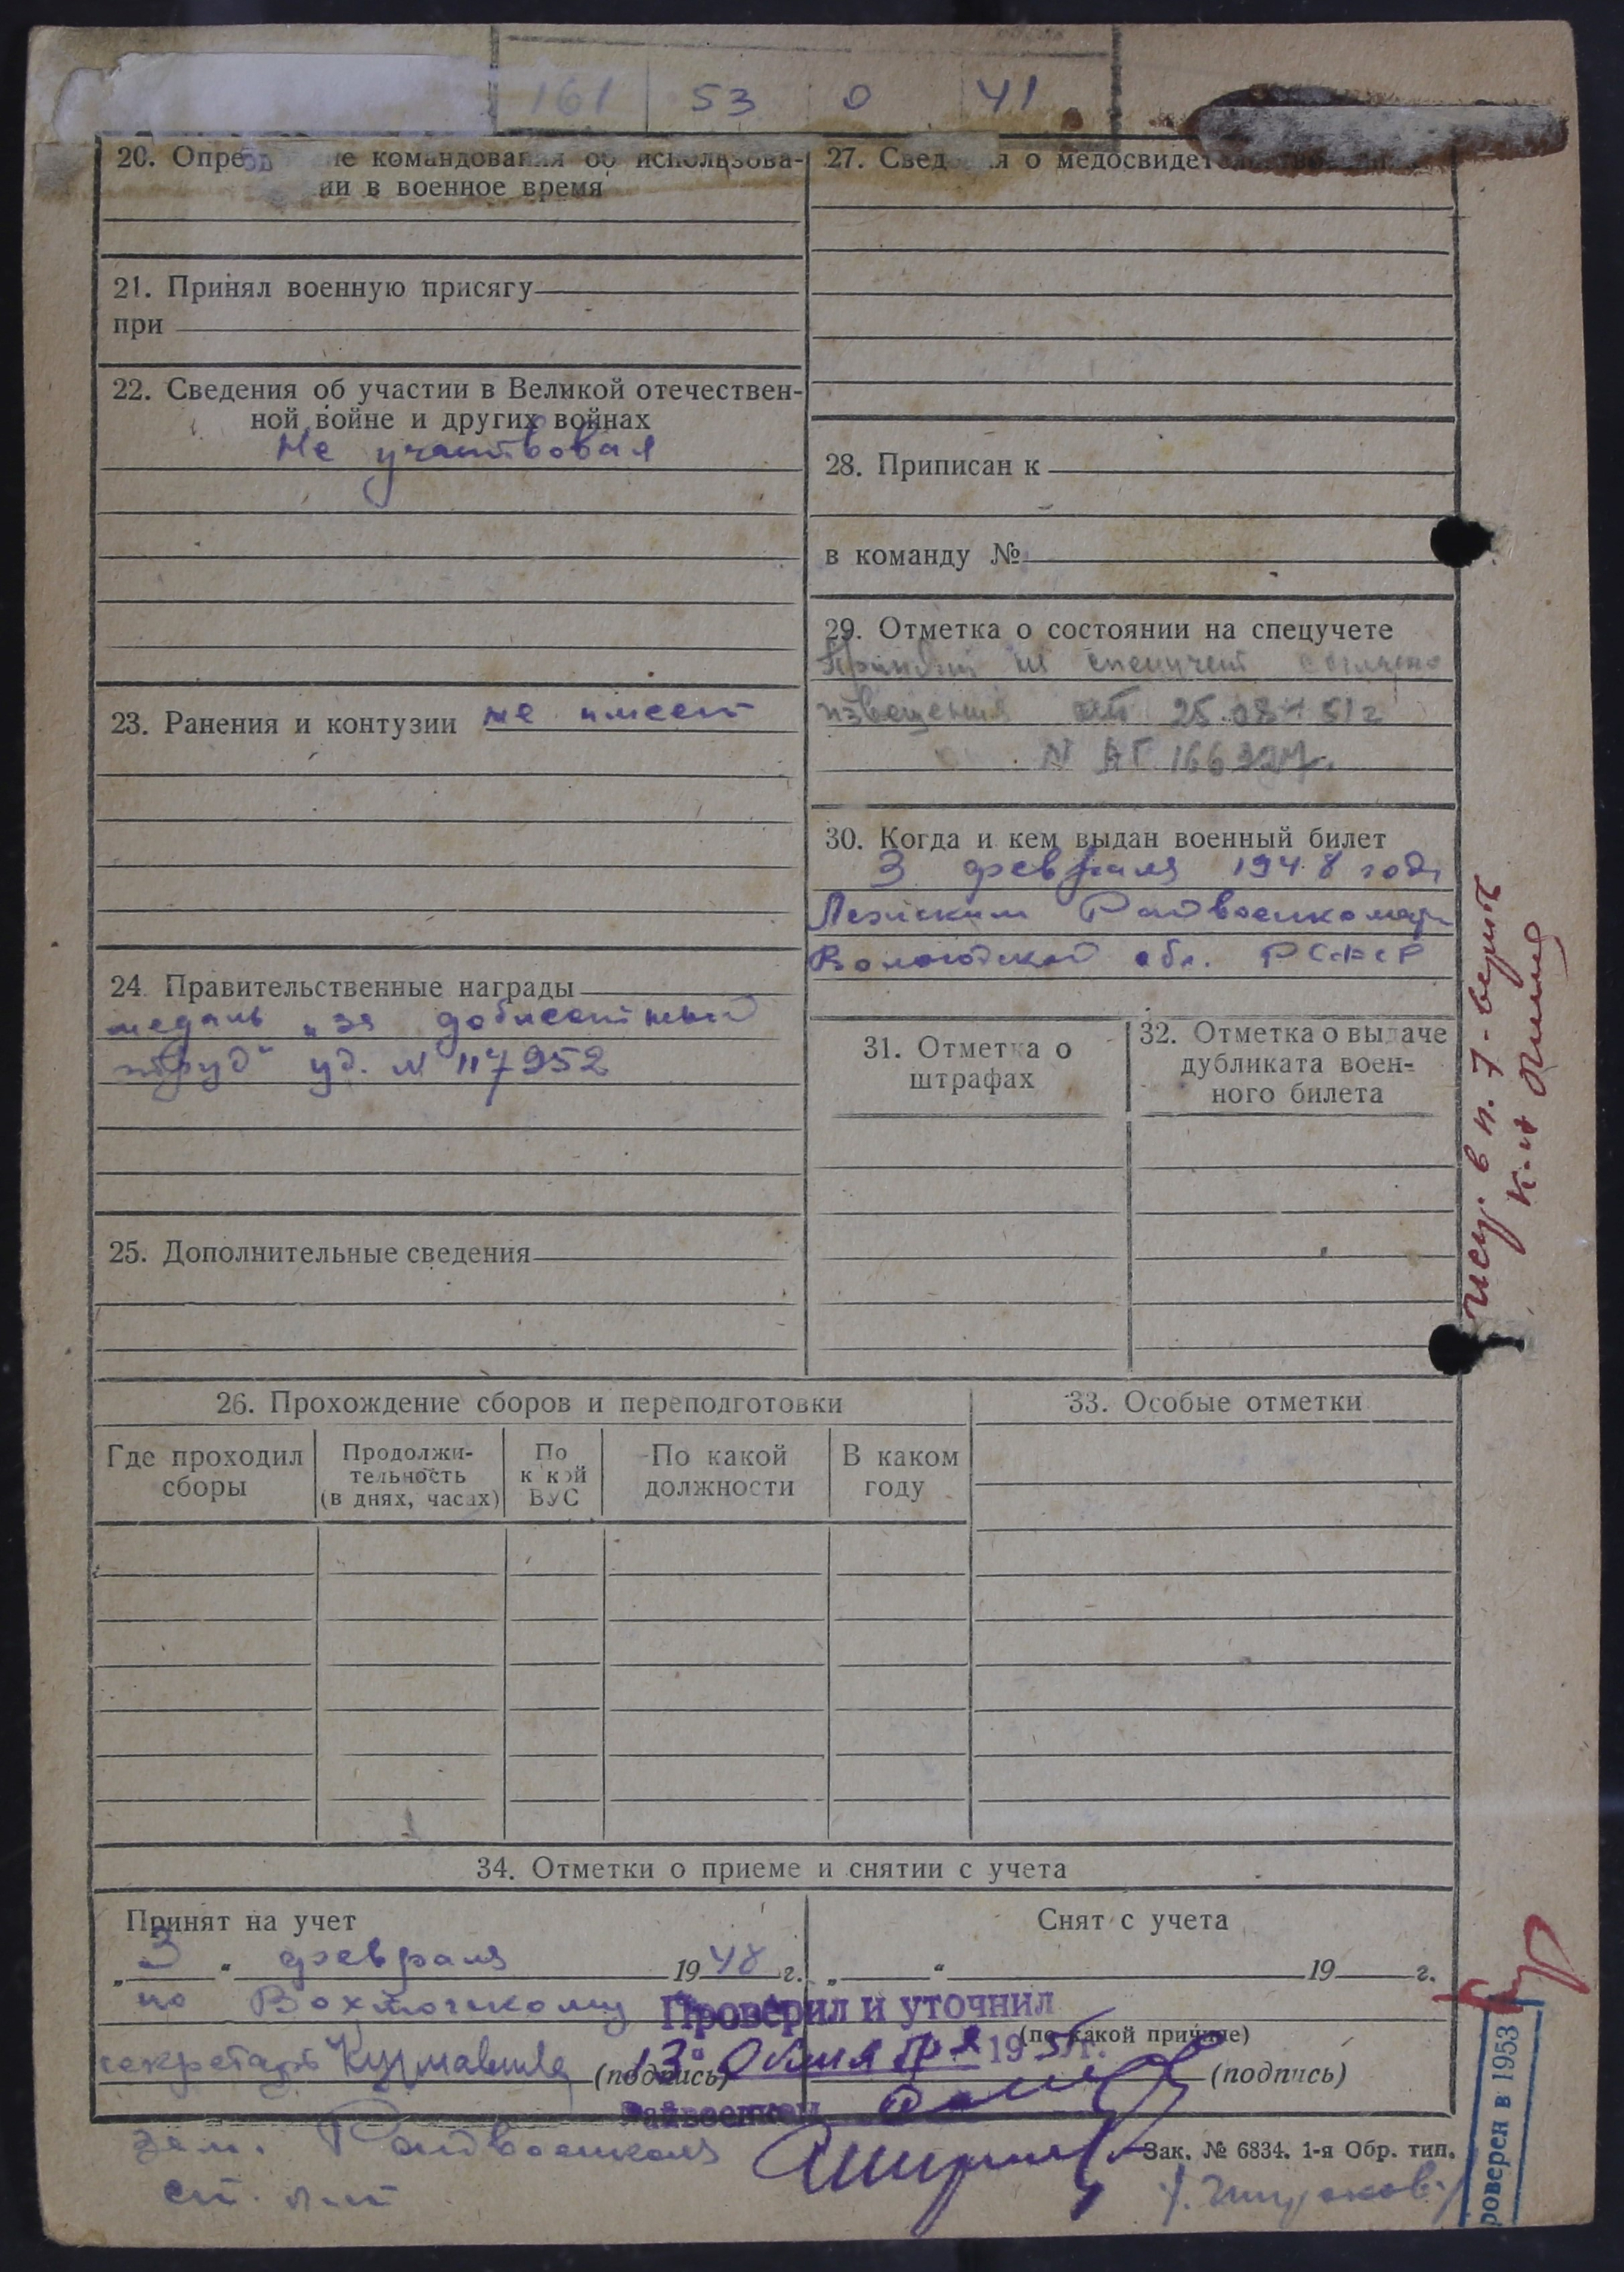 161 53 0 41
20. Опре ие командования об использова-
нии в военное время
21. Принял военную присягу
при
22. Сведения об участии в Великой отечествен-
ной войне и других войнах
Не участвовал
23. Ранения и контузии не имеет
24. Правительственные награды
медаль „за доблестный
труд" уд. N 117952
25. Дополнительные сведения
27. Свед я о медосвидетельствовании
28. Приписан к
в команду №
29. Отметка о состоянии на спецучете
Принят на спецучет согласно
извещения от 25.08 51г
N АГ 166327
30. Когда и кем выдан военный билет
3 февраля 1948 года
Лежским Райвоенкомат
Вологодской обл. РСФСР
31. Отметка о
штрафах
32. Отметка о выдаче
дубликата воен-
ного билета
26. Прохождение сборов и переподготовки
Где проходил
сборы
Продолжи-
тельность
(в днях, часах)
По
к кой
ВУС
По какой
должности
В каком
году
33. Особые отметки
34. Отметки о приеме и снятии с учета
Принят на учет
„3" февраля 1948 г.
по Вохтожскому
секретарь (подпись)
Снят с учета
„ " 19 г.
(по какой причине)
(подпись)
Проверил и уточнил
13 Октября 1951г.
Райвоенком
зам. Райвоенкома
ст. л-т
Зак. № 6834. 1-я Обр. тип.
в п. 7-
роверен в 1953